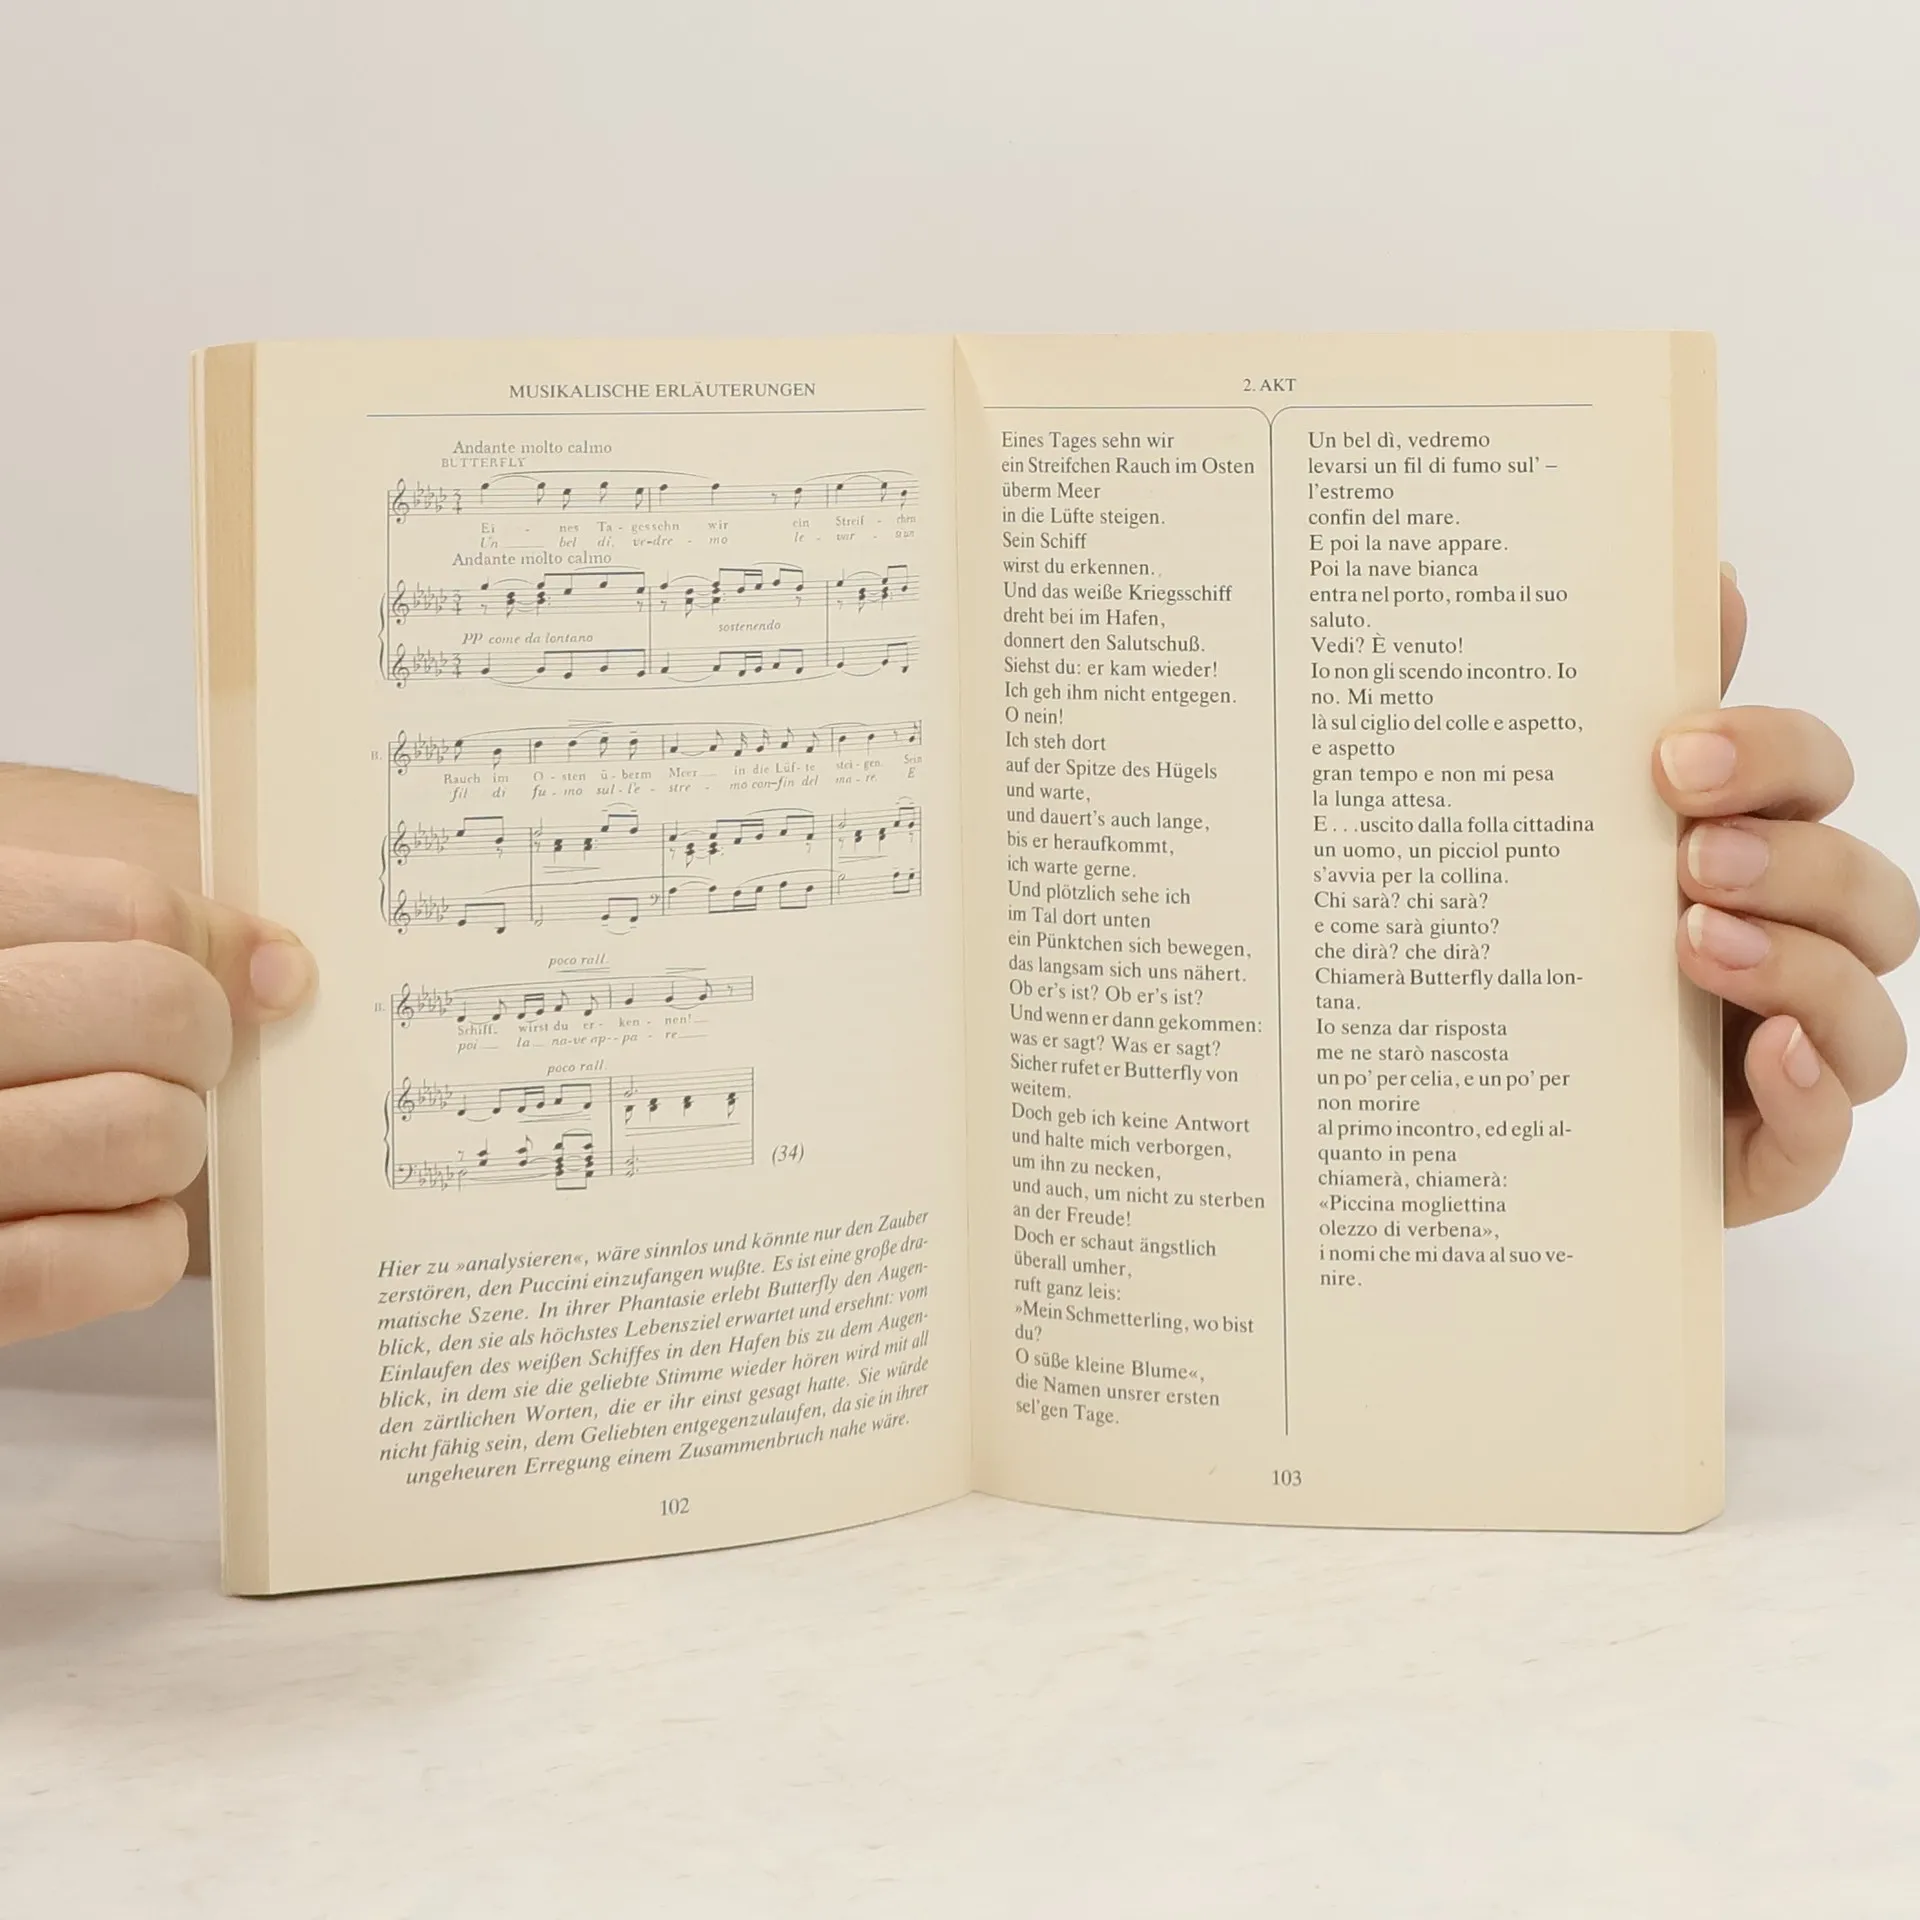 MUSIKALISCHE ERLÄUTERUNGEN
Andante molto calmo
BUTTERFLY
Ei - nes Ta - gessehn wir ein Streif - chen
Un bel dì, ve-dre - mo le - var - 
Andante molto calmo
PP come da lontano
sostenendo
B.
Rauch im O - sten ü - berm Meer in die Lüf - te stei - gen. Sein
fil di fu - mo sul - l'e - stre - mo con-fin del ma - re. E
poco rall.
B.
Schiff wirst du er - ken - nen!
poi la na-ve ap - pa - re
poco rall.
(34)
Hier zu »analysieren«, wäre sinnlos und könnte nur den Zauber
zerstören, den Puccini einzufangen wußte. Es ist eine große dra-
matische Szene. In ihrer Phantasie erlebt Butterfly den Augen-
blick, den sie als höchstes Lebensziel erwartet und ersehnt: vom
Einlaufen des weißen Schiffes in den Hafen bis zu dem Augen-
blick, in dem sie die geliebte Stimme wieder hören wird mit all
den zärtlichen Worten, die er ihr einst gesagt hatte. Sie würde
nicht fähig sein, dem Geliebten entgegenzulaufen, da sie in ihrer
ungeheuren Erregung einem Zusammenbruch nahe wäre.
102
2. AKT
Eines Tages sehn wir
ein Streifchen Rauch im Osten
überm Meer
in die Lüfte steigen.
Sein Schiff
wirst du erkennen.
Und das weiße Kriegsschiff
dreht bei im Hafen,
donnert den Salutschuß.
Siehst du: er kam wieder!
Ich geh ihm nicht entgegen.
O nein!
Ich steh dort
auf der Spitze des Hügels
und warte,
und dauert's auch lange,
bis er heraufkommt,
ich warte gerne.
Und plötzlich sehe ich
im Tal dort unten
ein Pünktchen sich bewegen,
das langsam sich uns nähert.
Ob er's ist? Ob er's ist?
Und wenn er dann gekommen:
was er sagt? Was er sagt?
Sicher rufet er Butterfly von
weitem.
Doch geb ich keine Antwort
und halte mich verborgen,
um ihn zu necken,
und auch, um nicht zu sterben
an der Freude!
Doch er schaut ängstlich
überall umher,
ruft ganz leis:
»Mein Schmetterling, wo bist
du?
O süße kleine Blume«,
die Namen unsrer ersten
sel'gen Tage.
Un bel dì, vedremo
levarsi un fil di fumo sul' –
l'estremo
confin del mare.
E poi la nave appare.
Poi la nave bianca
entra nel porto, romba il suo
saluto.
Vedi? È venuto!
Io non gli scendo incontro. Io
no. Mi metto
là sul ciglio del colle e aspetto,
e aspetto
gran tempo e non mi pesa
la lunga attesa.
E . . . uscito dalla folla cittadina
un uomo, un picciol punto
s'avvia per la collina.
Chi sarà? chi sarà?
e come sarà giunto?
che dirà? che dirà?
Chiamerà Butterfly dalla lon-
tana.
Io senza dar risposta
me ne starò nascosta
un po' per celia, e un po' per
non morire
al primo incontro, ed egli al-
quanto in pena
chiamerà, chiamerà:
«Piccina mogliettina
olezzo di verbena»,
i nomi che mi dava al suo ve-
nire.
103